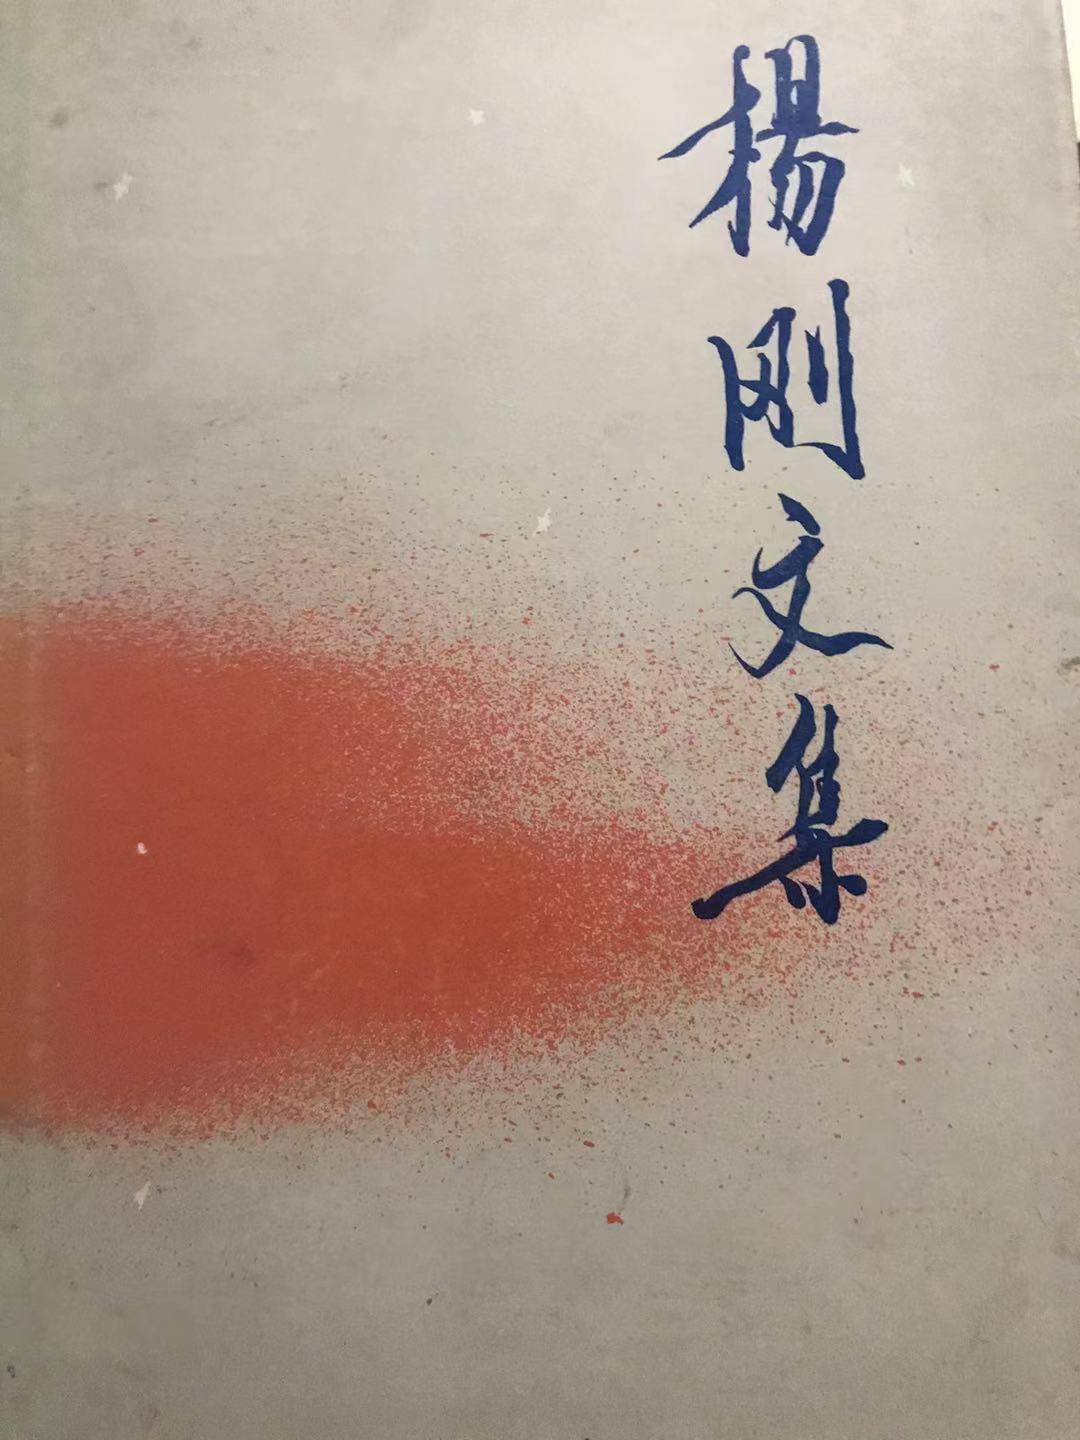 楊刚文集